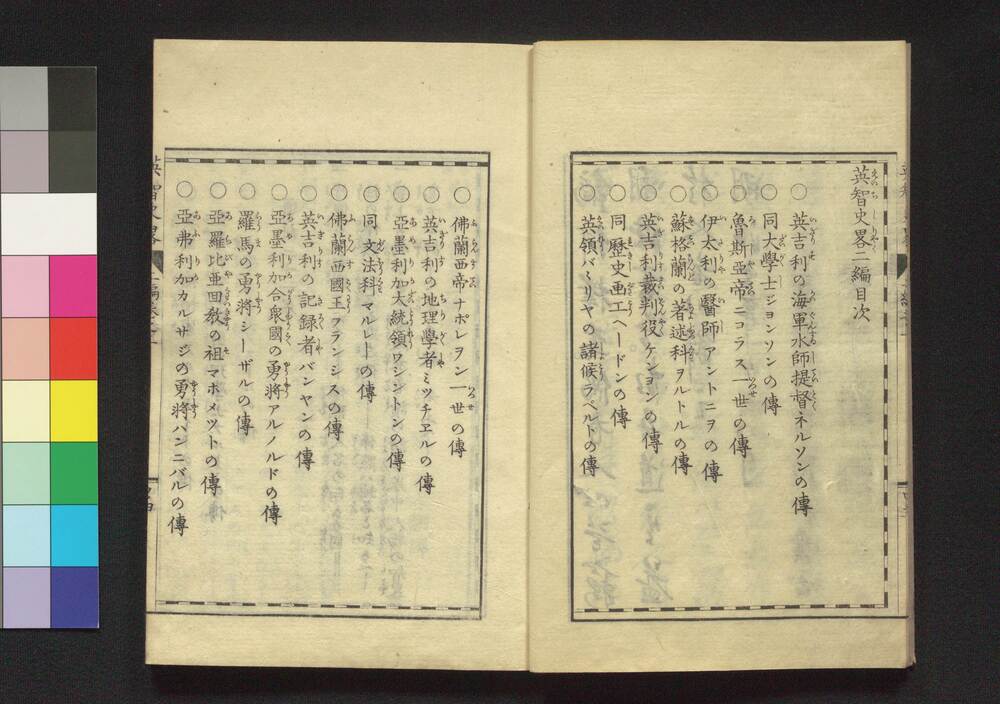 英智史畧二編目次
○英吉利の海軍水師提督ネルソンの傳
○同大學士ジヨンソンの傳
○魯斯亞帝ニコラス一世の傳
○伊太利の醫師アントニヲの傳
○蘇格蘭の著述科ヲルトルの傳
○英吉利裁判役ケンヨンの傳
○同歴史画工ヘードンの傳
○英領バミリヤの諸候ラベルトの傳
○佛蘭西帝ナポレヲン一世の傳
○英吉利の地理學者ミツチヱルの傳
○亞墨利加大統領ワシントンの傳
○同文法科マルレーの傳
○佛蘭西國王フランシスの傳
○英吉利の記録者バンヤンの傳
○亞墨利加合衆國の勇將アルノルドの傳
○羅馬の勇將シーザルの傳
○亞羅比亞回教の祖マホメツトの傳
○亞弗利加カルサジの勇將ハンニバルの傳